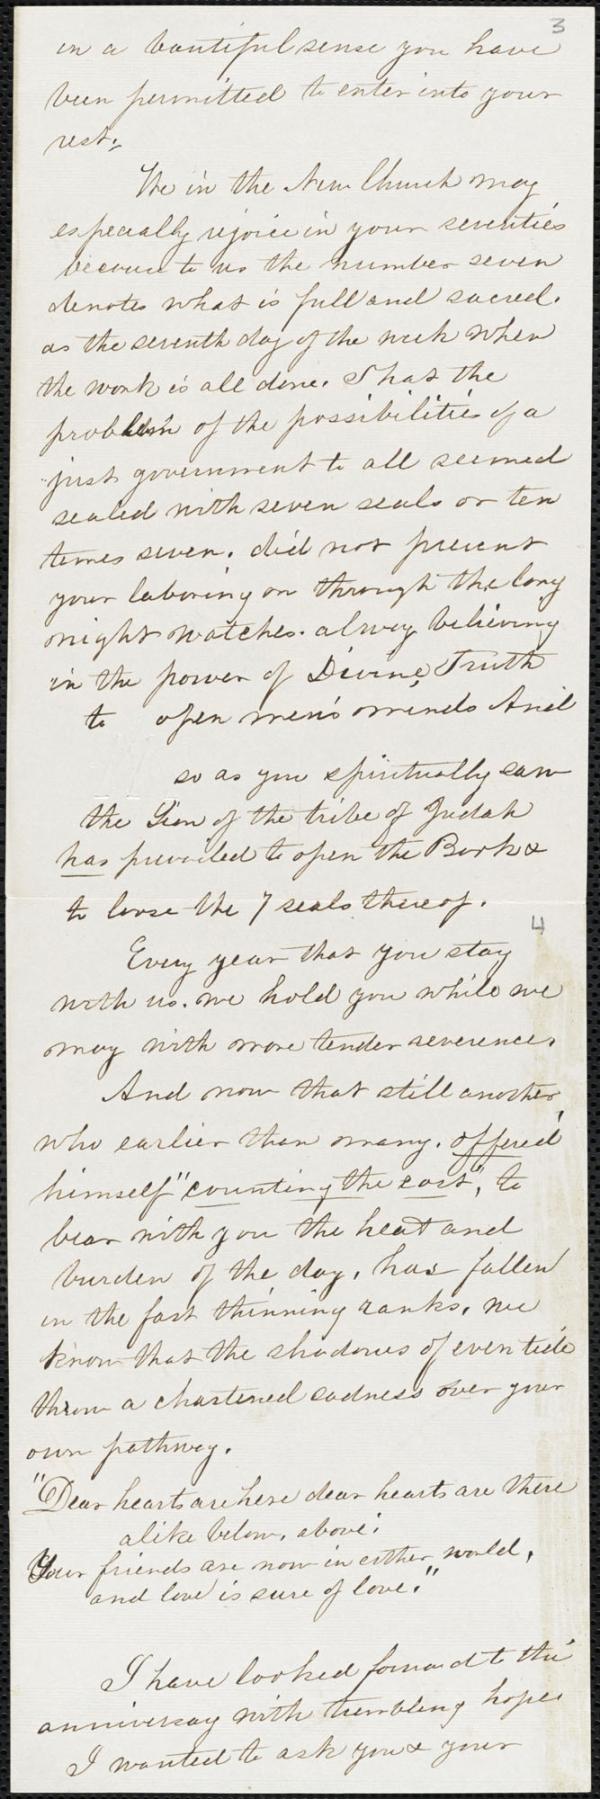 3
in a beautiful sense you have
been permitted to enter into your
rest.
We in the New Church may
especially rejoice in your seventies
because to us the number seven
denotes what is full and sacred.
as the seventh day of the week when
the work is all done. That the
problem of the possibilities of a
just government to all seemed
sealed with seven seals or ten
times seven. did not prevent
your laboring on through the long
night watches. alway believing
in the power of Divine Truth
to open men's minds And
so as you spiritually saw
the Lion of the tribe of Judah
has prevailed to open the Book &
to loose the 7 seals thereof.
4
Every year that you stay
with us. we hold you while we
may with more tender reverence.
And now that still another,
who earlier than many. offered
himself "counting the cost", to
bear with you the heat and
burden of the day, has fallen
in the fast thinning ranks. we
know that the shadows of even tide
throw a chastened sadness over your
own pathway.
"Dear hearts are here dear hearts are there
alike below, above;
Your friends are now in either world,
and love is sure of love."
I have looked forward to this
anniversay with trembling hopes
I wanted to ask you & your